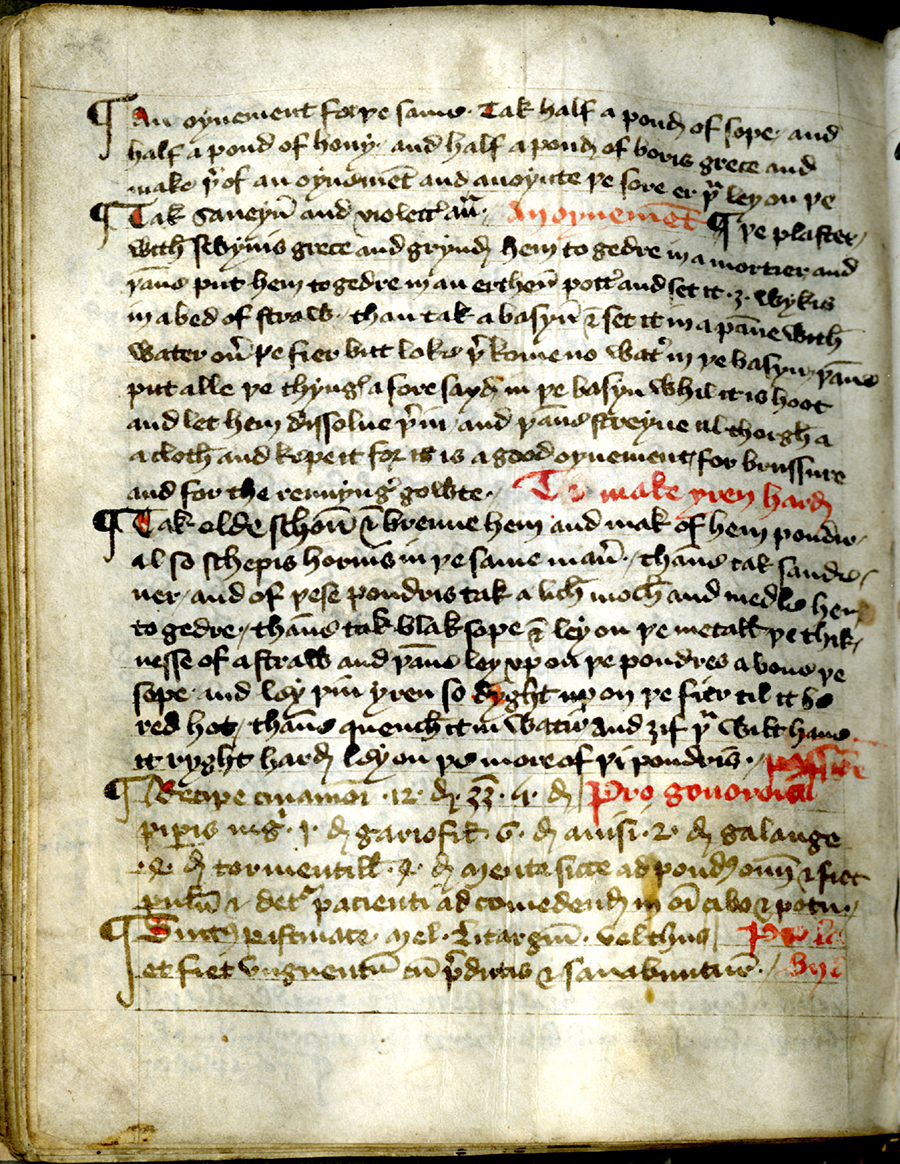 ¶ An oynement for þe same. Tak half a pond of sope, and
half a pond of hony, and half a pond of boris grece and
make þ͛of an oynemēt and anoynte þe sore er þᵘ ley on þe
¶ Tak saueyn and violett an̄. An oynemēt ¶ þe plaster,
with swynis grece and grynd hem to gedre in a mortier and
þane put hem to gedre in an erthen pott and set it .3. wykis
in a bed of straw, than tak a basyn & set it in a pāne with
water ou͛ þe fier but loke þ͛ kome no wat͛ in þe basyn, þane
put alle þe thyngꝭ a fore sayd in þe basyn whil it is hoot
and let hem dissolue þ͛in, and þane streyne al thorgh a
a cloth and kepe it for it is a good oynement, for brussure
and for the rennyng gowte. To make yren hard
¶ Tak olde schon & brenne hem and mak of hem poudir,
al so schepis hornis in þe same man͛, thane tak
and of þese poudris tak a lich moch and medle hem
to gedre, thane tak blak sope & ley on þe metall þe thik,
nesse of a straw and þane ley vpon þe poudres a boue þe
sope and ley þin yren so dyght up on þe fier til it be
red hot, thane quench it in watir and ȝif þᵘ wilt haue
it ryght hard ley on þe more of þi poudris.
¶ Recipe cinamoī .12. d͛. Pro
pip͛is nig͛. 1. d͛ gariofil. 6. d͛ anisi. 2. d͛ galange
d͛ tormentill. d͛ mente sicce ad pond͛ oīm & fiet
puluis & det͛ pacienti ad comedend͛ in oī cibo & potu,
¶ mel. litargiū. vel thus Pro
et fiet vnguentū cū p͛dictis & sanabuntur.